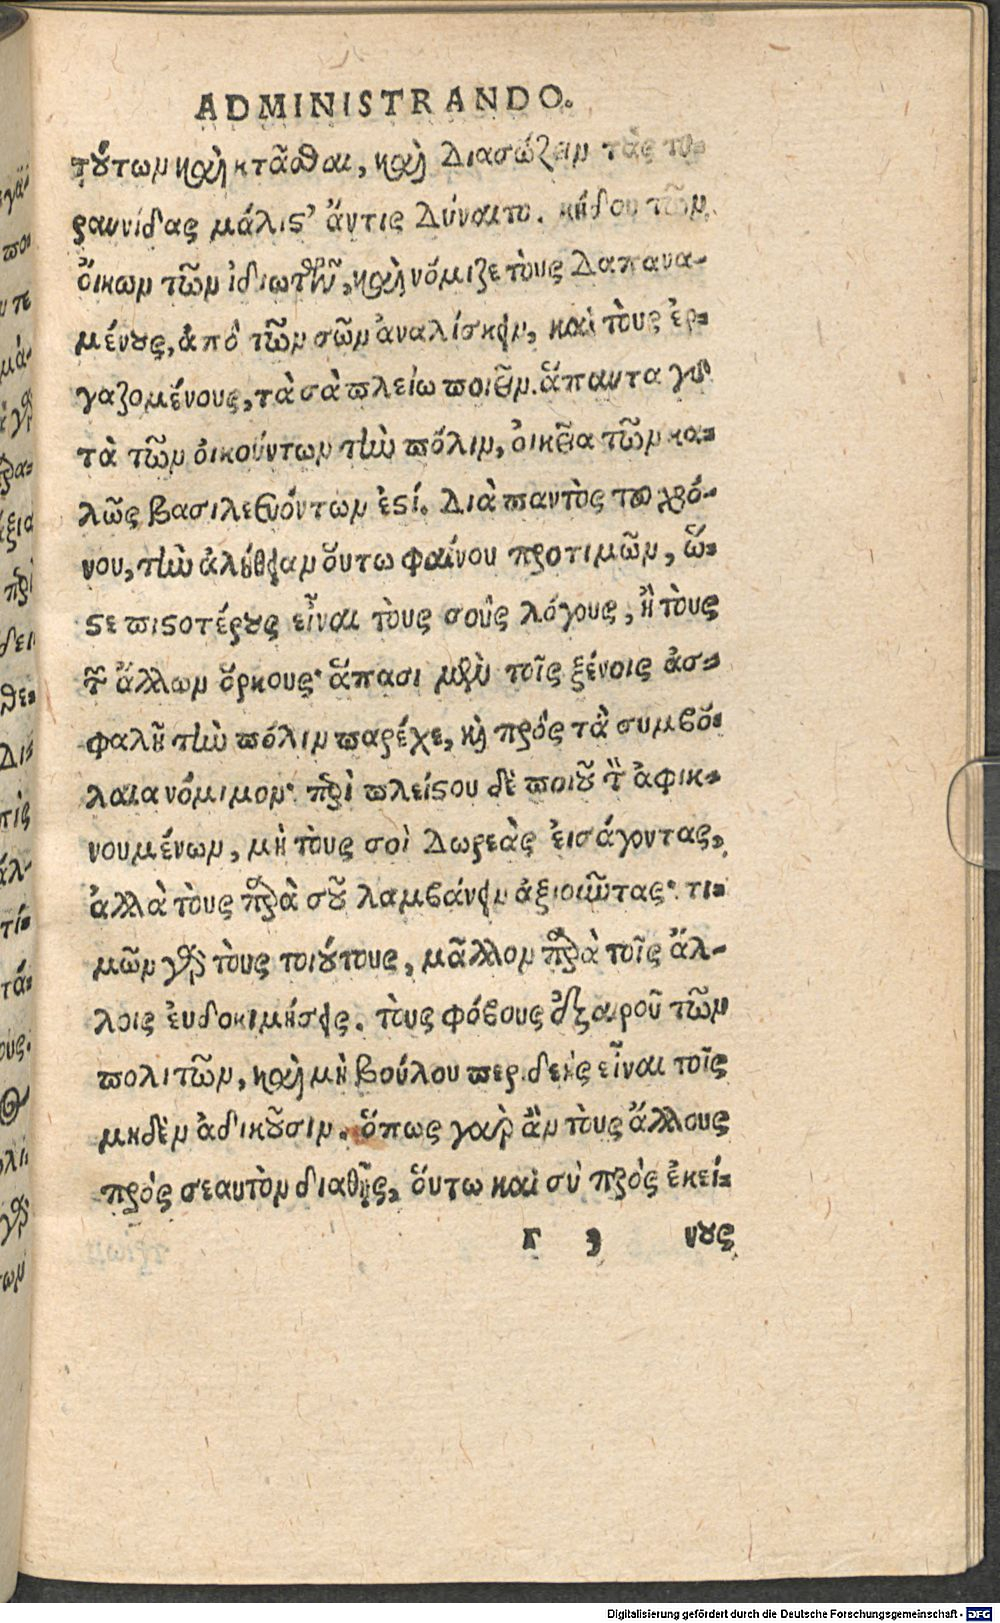 ADMINISTRANDO.
τούτων καὶ κτᾶσθαι, καὶ διασώζειν τὰς τυ-
ραννίδας μάλιστ’ ἄντις δύναιτο. κήδου τῶν
ὄικων τῶν ἰδιωτικῶν, καὶ νόμιζε τοὺς δαπανω-
μένους, ἀπὸ τῶν σῶν ἀναλίσκειν, καὶ τοὺς ἐρ-
γαζομένους, τὰ σὰ πλείω ποιεῖν. ἅπαντα γὰρ
τὰ τῶν ὀικούντων τὴν πόλιν, ὀικεῖα τῶν κα-
λῶς βασιλευόντων ἐστί. Διὰ παντὸς τοῦ χρό-
νου, τὴν ἀλήθειαν ὅυτω φαίνου προτιμῶν, ὥ-
στε πιστοτέρους εἶναι τοὺς σοὺς λόγους, ἢ τοὺς
τῶν ἄλλων ὅρκους· ἅπασι μὲν τοῖς ξένοις ἀσ-
φαλῆ τὴν πόλιν παρέχε, καὶ πρὸς τὰ συμβό-
λαια νόμιμον· περὶ πλείστου δὲ ποιοῦ τῶν ἀφικ-
νουμένων, μὴ τοὺς σοὶ δωρεὰς ἐισάγοντας,
ἀλλὰ τοὺς παρὰ σοῦ λαμβάνειν ἀξιοῦντας· τι-
μῶν γὰρ τοὺς τοιούτους, μᾶλλον παρὰ τοῖς ἄλ-
λοις ἐυδοκιμήσεις. τοὺς φόβους ἐξαιροῦ τῶν
πολιτῶν, καὶ μὴ βούλου περιδεὴς εἶναι τοῖς
μηδὲν ἀδικοῦσιν. ὅπως γὰρ ἂν τοὺς ἄλλους
πρὸς σεαυτὸν διαθῇς, ὅυτω καὶ σὺ πρὸς ἐκεί-
γ 3 νους
Digitalisierung gefördert durch die Deutsche Forschungsgemeinschaft - DFG